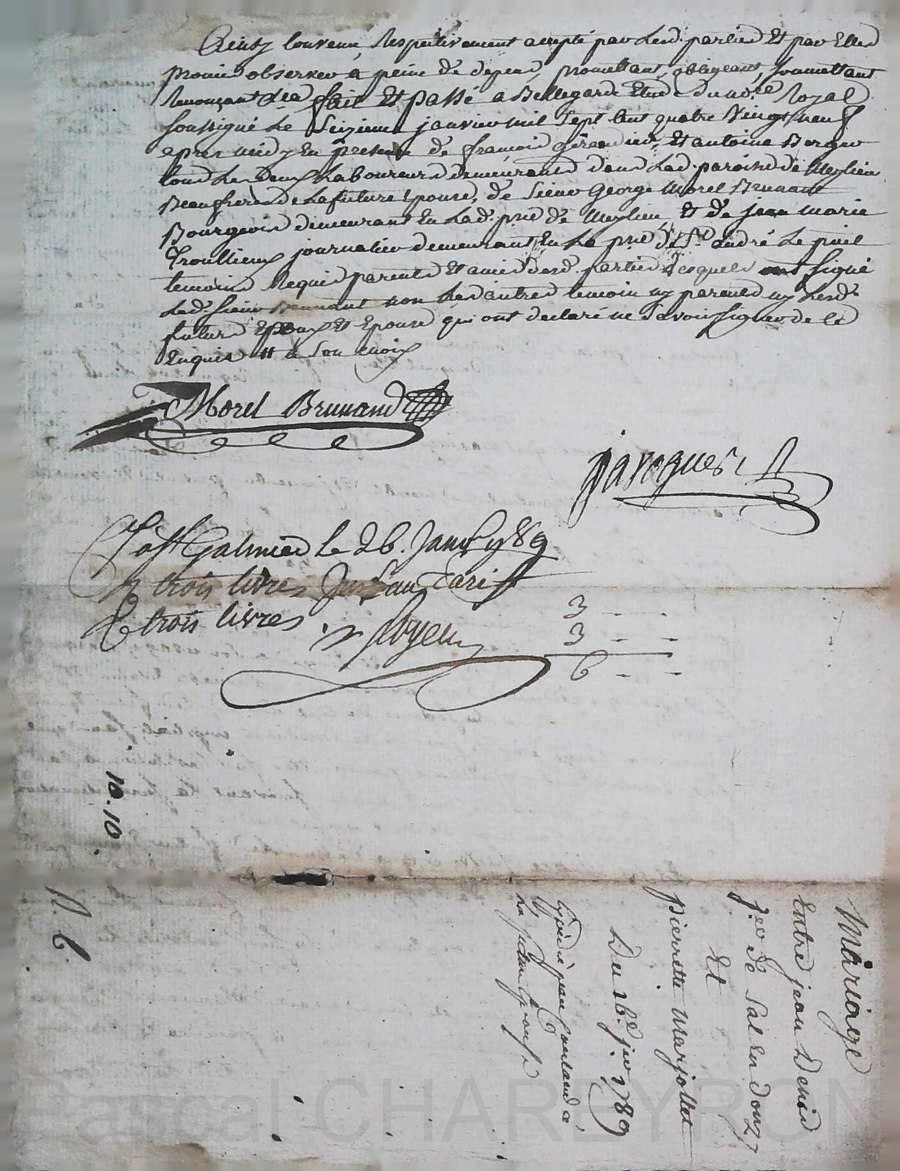 Ainsy Convenu, Respectivement accepté par Lesd. parties Et par Elles
promis observer a peine de depens, promettant, obligeant, soumettant
Renonçant &ca fait Et passé a Bellegarde Etude du nore Royal
soussigné Le Seizieme janvier mil sept Cent quatre Vingt neuf
apres midy En presence de françois Girardier, Et antoine Berger
tous Les Deux Laboureurs demeurants dans Lad. paroisse de Meylieu
Beaufreres de La future Epouse, de Sieur George Morel Brunand
Bourgeois demeurant En Lad. psse de Meylieu Et de jean marie
Troullieux journalier demeurant En La psse de St andré Le puit
temoins Requis parents Et amis desd. parties Lesquels signé
Led. sieur Brunand non Les autres temoins ny parents ny Lesd.
futurs Epoux Et Epouse qui ont declaré ne savoir signer de ce
Enquis a son choix
Morel Brunand
javogues
Galmier Le 26. Janv. 1789
trois livres Tarif
trois livres
3 - -
3 - -
6 - -
10. 10
n. 6.
Mariage
Entre jean Denis
de
Et
pierrette marjollet
Du 16e jer 1789
Pascal CHAREYRON